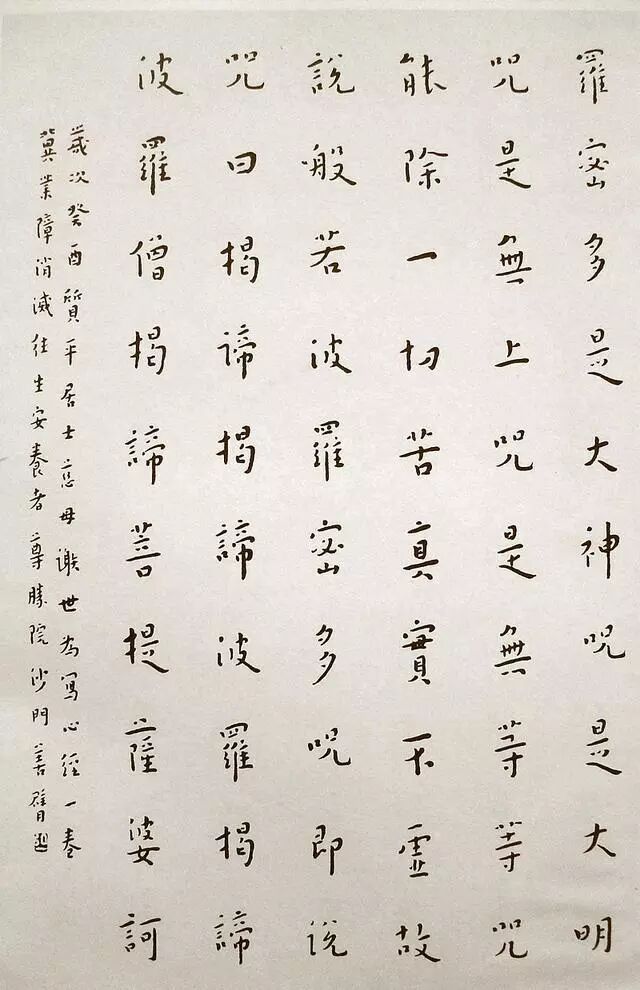 羅密多是大神呪是大明
呪是無上呪是無等等呪
能除一切苦真實不虛故
說般若波羅密多呪即說
呪曰揭諦揭諦波羅揭諦
波羅僧揭諦菩提薩婆訶
歲次癸酉質平居士慈母謝世為寫心經一卷
冀業障消滅往生安養者尊勝院沙門善臂